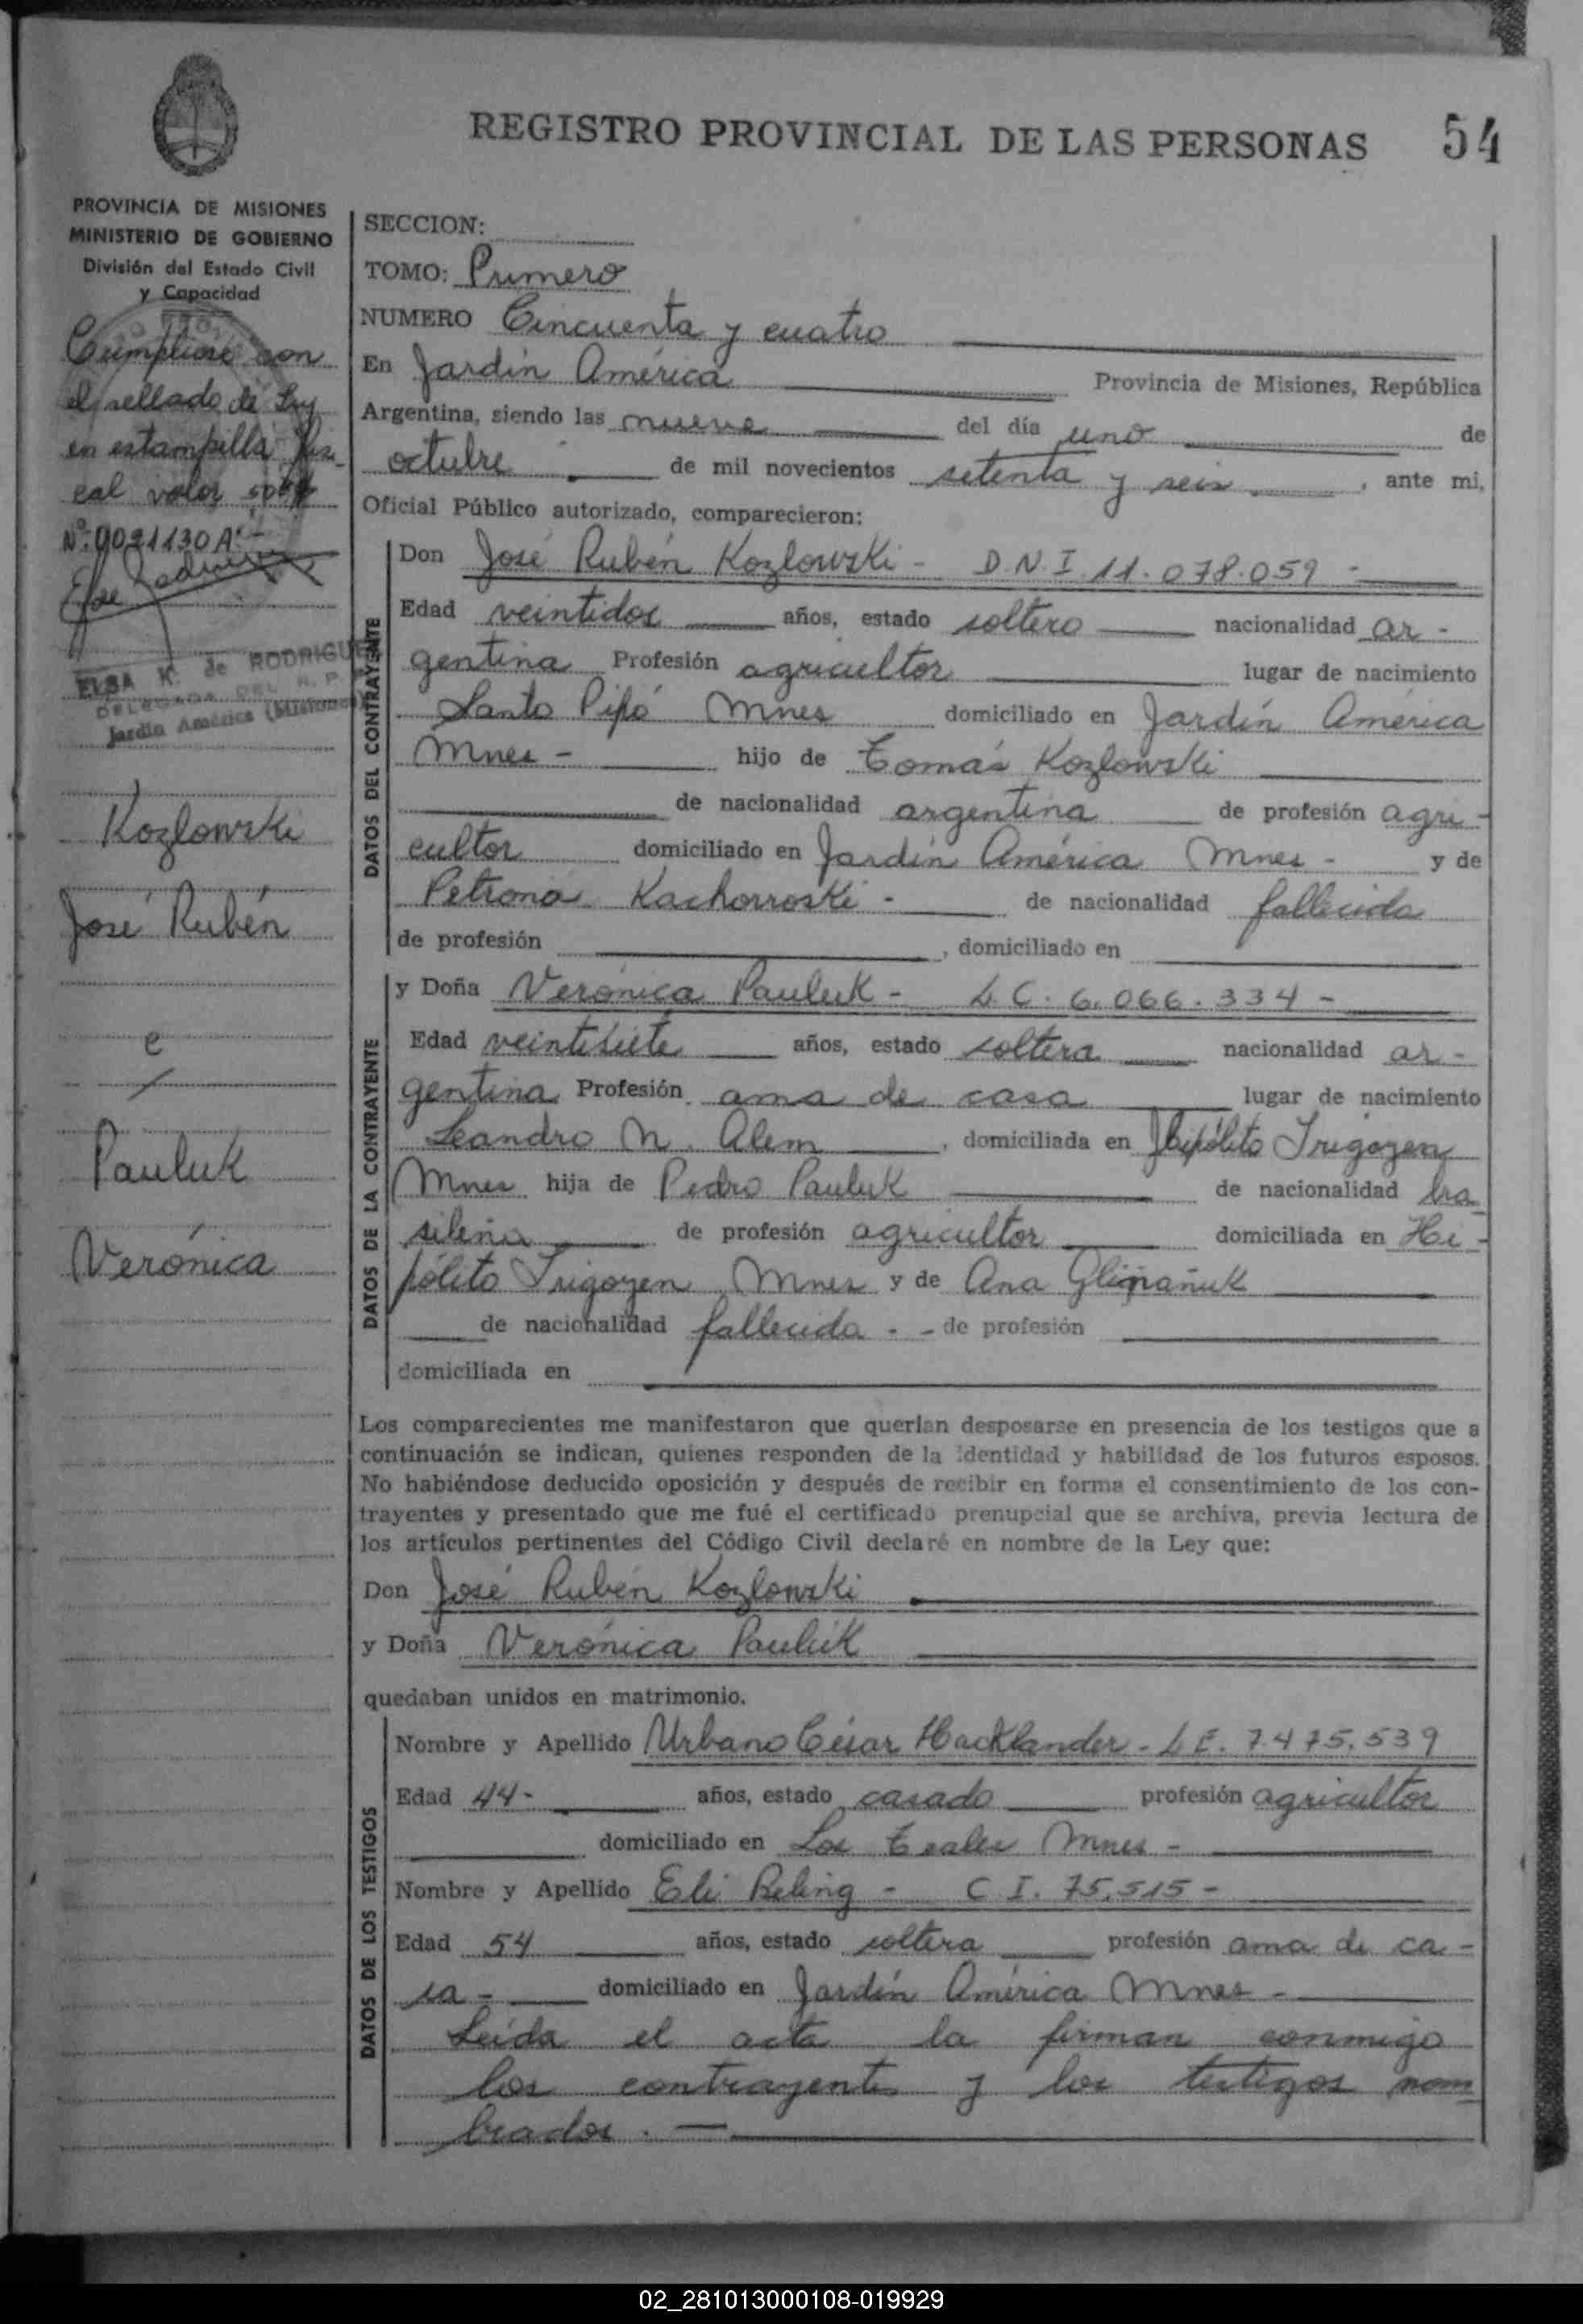 REGISTRO PROVINCIAL DE LAS PERSONAS 54
PROVINCIA DE MISIONES
MINISTERIO DE GOBIERNO
División del Estado Civil
y Capacidad
Cumpliose con
el sellado de Ley
en estampilla fis-
cal valor
Nº: 0021130 A.-
ELSA K. de RODRIGUEZ
DELEGADA DEL R. P.
Jardín América (Misiones)
Kozlowski
José Rubén
e
Pauluk
Verónica
SECCION:
TOMO: Primero
NUMERO Cincuenta y cuatro
En Jardín América Provincia de Misiones, República
Argentina, siendo las nueve del día uno de
octubre de mil novecientos setenta y seis, ante mi,
Oficial Público autorizado, comparecieron:
DATOS DEL CONTRAYENTE
Don José Rubén Kozlowski - D.N.I. 11.078.059 -
Edad veintidos años, estado soltero nacionalidad ar-
gentina Profesión agricultor lugar de nacimiento
Santo Pipó Mnes domiciliado en Jardín América
Mnes - hijo de Tomás Kozlowski
de nacionalidad argentina de profesión agri-
cultor domiciliado en Jardín América Mnes - y de
Petrona Kachorroski - de nacionalidad fallecida
de profesión , domiciliado en
DATOS DE LA CONTRAYENTE
y Doña Verónica Pauluk - L.C. 6.066.334 -
Edad veintisiete años, estado soltera nacionalidad ar-
gentina Profesión ama de casa lugar de nacimiento
Leandro N. Alem , domiciliada en Hipólito Irigoyen
Mnes hija de Pedro Pauluk de nacionalidad bra
sileña de profesión agricultor domiciliada en Hi-
pólito Irigoyen Mnes y de Ana
de nacionalidad fallecida - de profesión
domiciliada en
Los comparecientes me manifestaron que querían desposarse en presencia de los testigos que a
continuación se indican, quienes responden de la identidad y habilidad de los futuros esposos.
No habiéndose deducido oposición y después de recibir en forma el consentimiento de los con-
trayentes y presentado que me fué el certificado prenupcial que se archiva, previa lectura de
los artículos pertinentes del Código Civil declaré en nombre de la Ley que:
Don José Rubén Kozlowski
y Doña Verónica Pauluk
quedaban unidos en matrimonio.
DATOS DE LOS TESTIGOS
Nombre y Apellido Urbano César Hacklander - L.E. 7.475.539
Edad 44- años, estado casado profesión agricultor
domiciliado en Los Teales Mnes -
Nombre y Apellido Eli Reling - C.I. 75.515 -
Edad 54 años, estado soltera profesión ama de ca-
sa - domiciliado en Jardín América Mnes -
Leída el acta la firman conmigo
los contrayentes y los testigos nom
brados. -
02_281013000108-019929